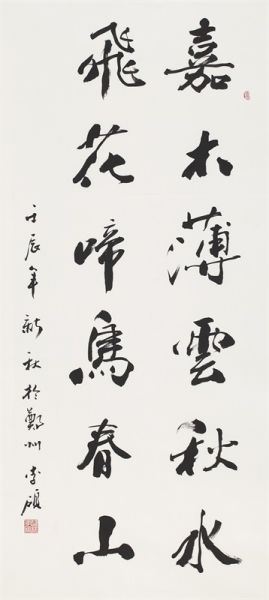 嘉木薄雲秋水
飛花啼鳥春山
壬辰年新秋於鄭州李碩